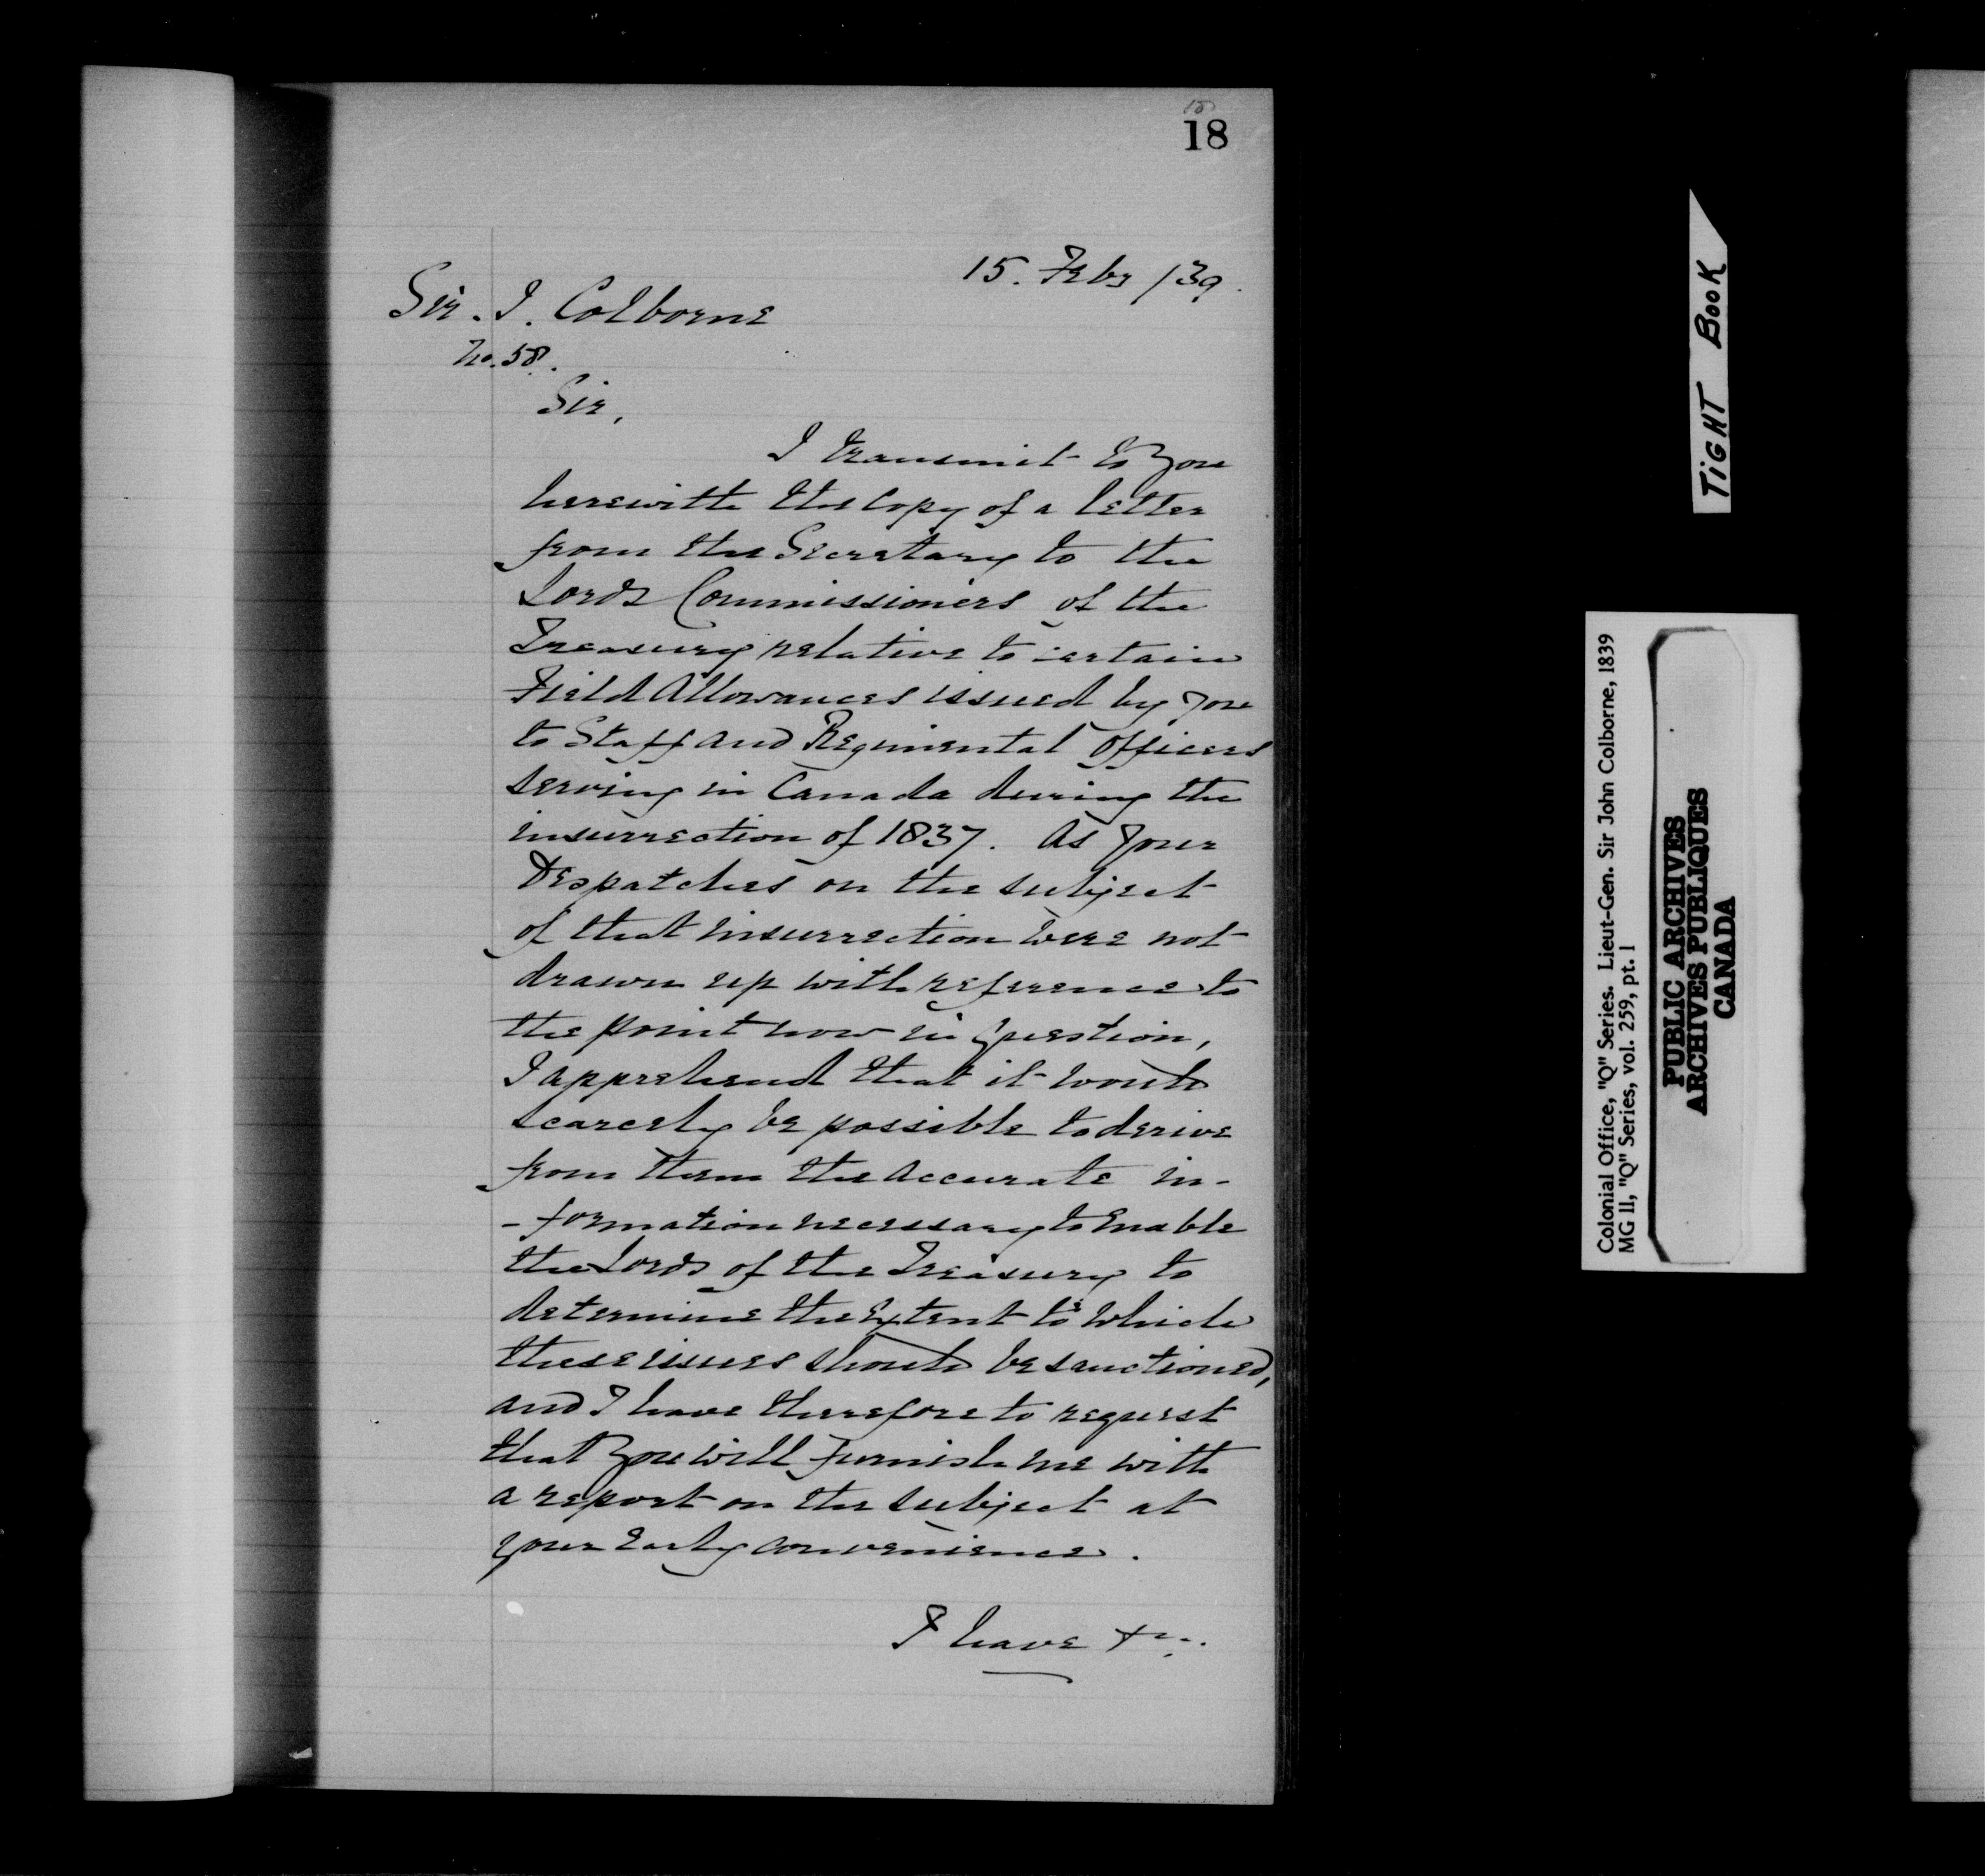 18
15. Feby /39.
Sir. J. Colborne
No. 58.
Sir,
I transmit to you
herewith the Copy of a letter
from the Secretary to the
Lords Commissioners of the
Treasury relative to certain
Field Allowances issued by you
to Staff and Regimental Officers
serving in Canada during the
insurrection of 1837. As your
Despatches on the subject
of that insurrection were not
drawn up with reference to
the point now in question,
I apprehend that it would
scarcely be possible to derive
from them the accurate in-
-formation necessary to enable
the Lords of the Treasury to
determine the Extent to which
these issues should be sanctioned,
and I have therefore to request
that you will furnish me with
a report on the subject at
your early convenience.
I have &c.
TIGHT BOOK
Colonial Office, "Q" Series. Lieut-Gen. Sir John Colborne, 1839
MG 11, "Q" Series, vol. 259, pt. 1
PUBLIC ARCHIVES
ARCHIVES PUBLIQUES
CANADA